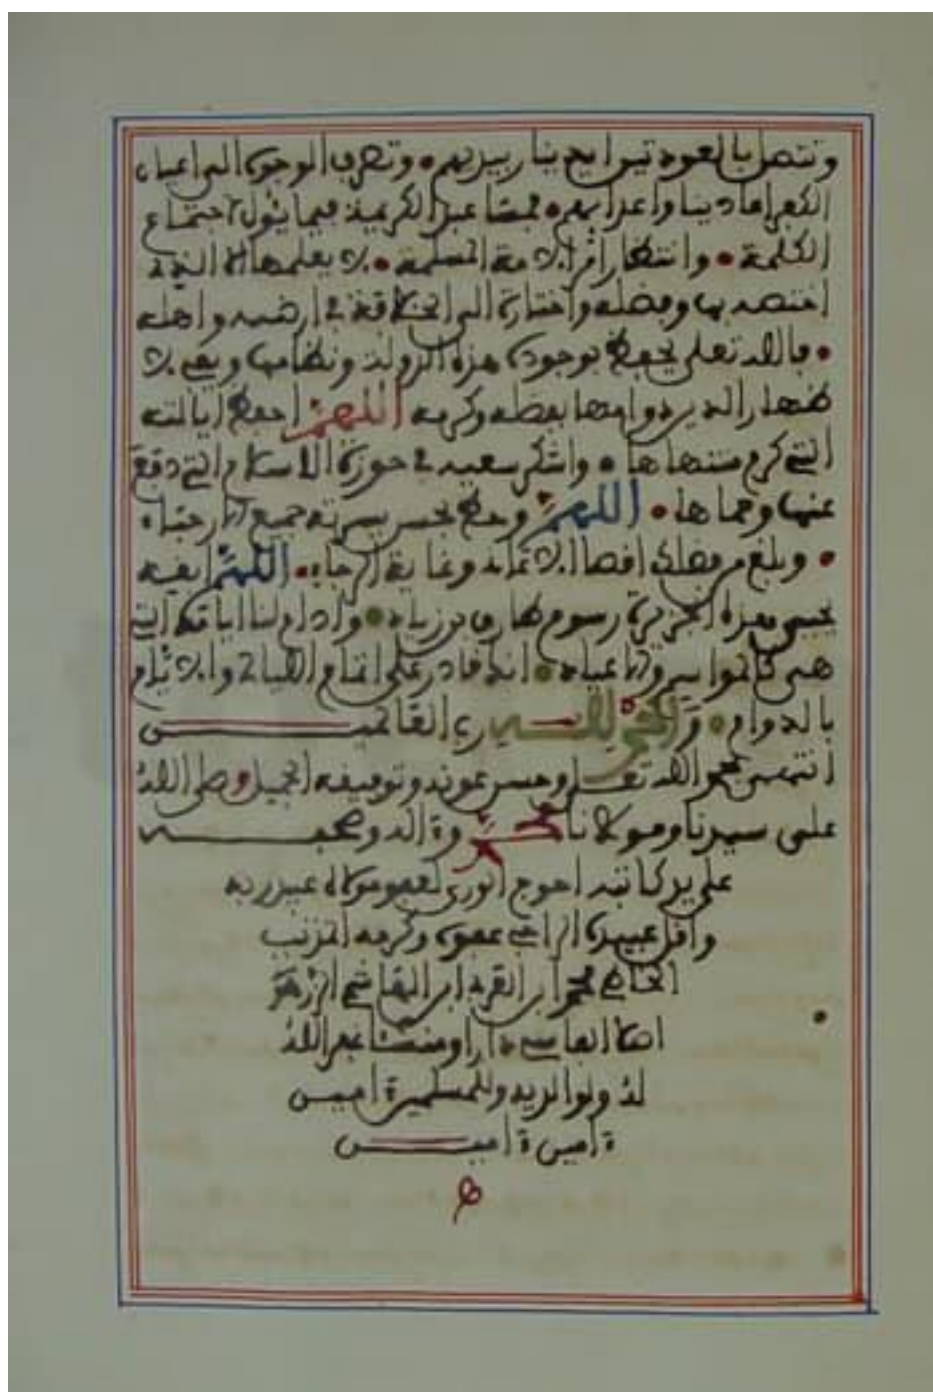 وتتصل بالعودتين ايدينا بين يديهم • وتصرف الوجوه الى اعياء
الكفر اعادينا واعدايهم • فمسا عيد الكريمة فيما يئول لاجتماع
الكلمة • وانتظار امر الامة المسلمة • لا يعلمها الا الذي
اختصه بها وفضله واختاره الى الخلافة في ارضه واهله
• فالله تعلى يحفظ بوجوده هذه الدولة ونظامها ويعي لا
ظهار الدين دوامها بفضله وكرمه اللهم احفظ ايالته
التي كرم منتهاها • واشكر سعيه في حوزة الاسلام التي دفع
عنها وحماها • اللهم وحط بحسن سيرته جميع الارجاء
• وبلغ من فضلك اقصا الامال وغاية الرجاء • اللهم ابقه
يحيي بهذه الجزيرة رسوم طارق بن زياد • وادام لنا ايامه التي
هي كالمواسم والاعياد • انك قادر على اتمام الليالي والايام
بالدوام • والحمد لله رب العالمين
انتهى بحمد الله تعلى وحسن عونه وتوفيقه الجميل وصلى الله
على سيدنا ومولانا محمد وءاله وصحبه
على يد كاتبه احوج الورى لعفو مولاه عبد ربه
واقل عبيده الراجي عفوه وكرمه المذنب
الخاطئ محمد ابن القريد ابن الهاشمي الزهر
اصلا الفاسي دارا ومنشئا غفر الله
له ولوالديه وللمسلمين ءامين
ءامين ءامين